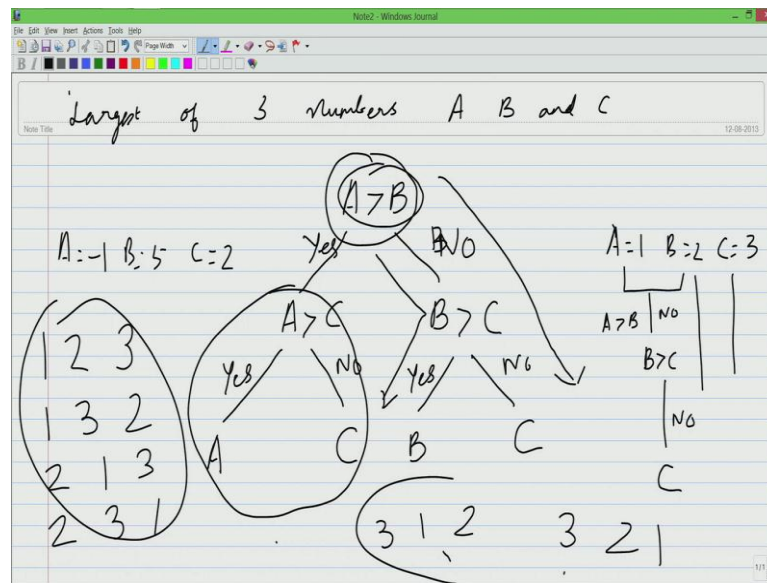 Note2 - Windows Journal
File Edit View Insert Actions Tools Help
Page Width
B I
Largest of 3 numbers A B and C
Note Title
12-08-2013
A > B
Yes
NO
A=-1 B=5 C=2
A > C
B > C
Yes
NO
Yes
NO
A
C
B
C
A=1 B=2 C=3
A>B NO
B>C
NO
C
1 2 3
1 3 2
2 1 3
2 3 1
3 1 2
3 2 1
1/1